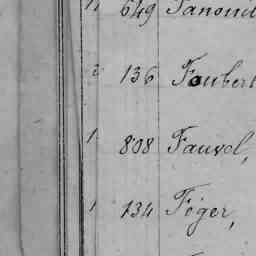 649 Fanouil
2 136 Foubert
1 808 Fauvel,
1 134 Féger,